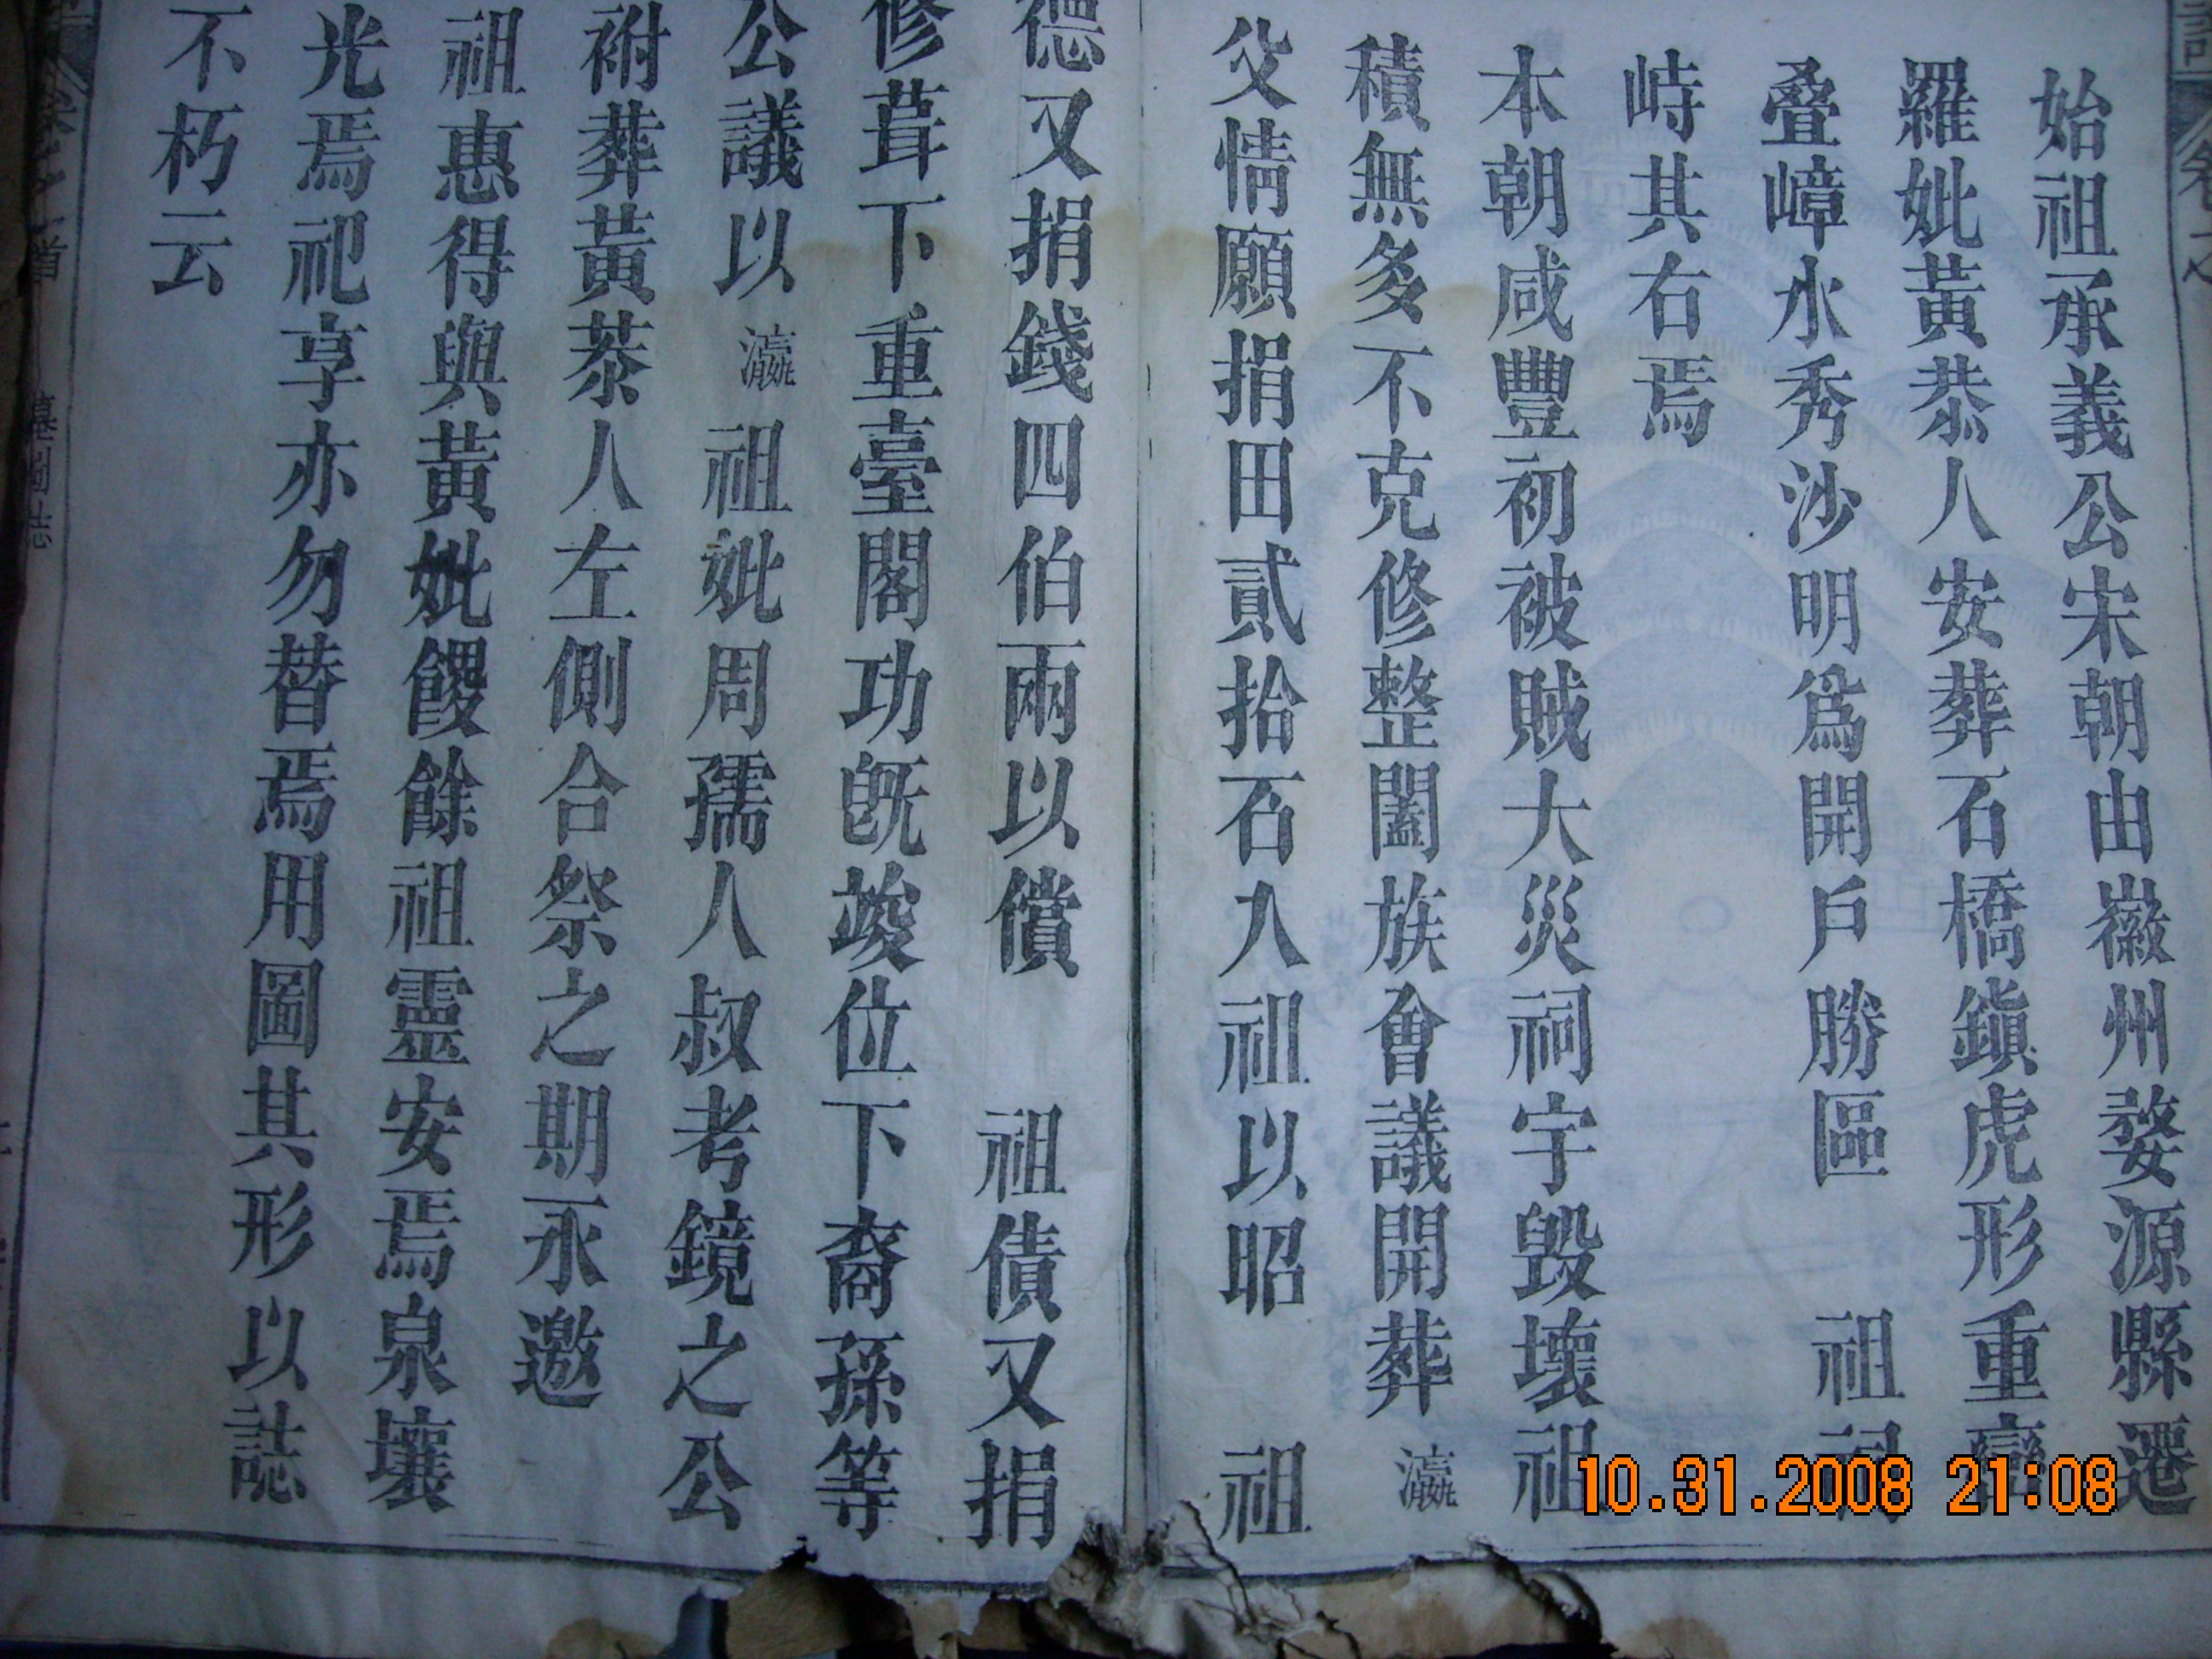 始祖承義公宋朝由徽州婺源縣遷
羅妣黃恭人安葬石橋鎮虎形重巒
叠嶂水秀沙明爲開戶勝區　祖祠
峙其右焉
本朝咸豐初被賊大災祠宇毀壞祖
積無多不克修整闔族會議開葬瀛嬎
父情願捐田貳拾石入祖以昭　祖
德又捐錢四伯兩以償　祖債又捐
修葺下重臺閣功旣竣位下裔孫等
公議以　祖妣周孺人叔考鏡之公
祔葬黃恭人左側合祭之期永邀
祖惠得與黃妣餕餘祖靈安焉泉壤
光焉祀享亦勿替焉用圖其形以誌
不朽云
首
墓圖誌
10.31.2008 21:08